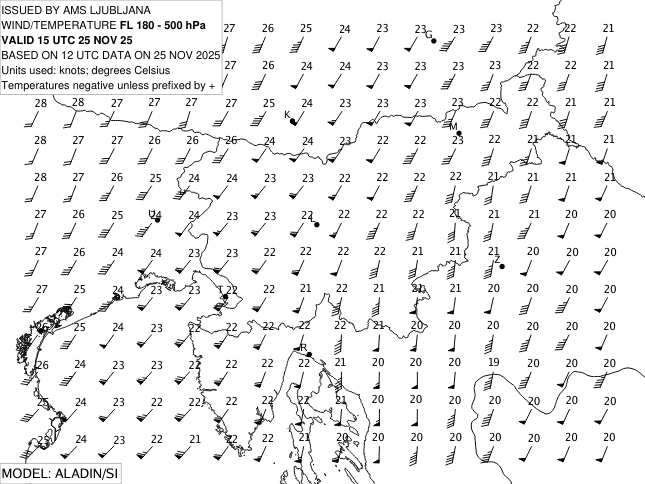 ISSUED BY AMS LJUBLJANA
WIND/TEMPERATURE FL 180 - 500 hPa
VALID 15 UTC 25 NOV 25
BASED ON 12 UTC DATA ON 25 NOV 2025
Units used: knots; degrees Celsius
Temperatures negative unless prefixed by +
27 26 25 24 23 23 23 23 22 22 21
G
27 26 24 24 24 23 23 22 22 22 21
28 27 27 27 27 27 25 24 23 23 23 23 22 22 21 21
K
M
28 27 27 26 26 26 24 24 23 22 22 23 22 21 21 21
28 27 26 25 24 24 23 23 22 22 22 22 21 21 21 21
27 26 25 24 24 23 23 22 22 22 22 21 21 21 20 20
U
L
27 26 24 24 23 23 22 22 22 22 21 21 21 20 20 20
Z
27 25 24 23 23 22 22 21 22 21 21 21 20 20 20 20
T
25 24 23 22 22 22 22 22 21 20 20 20 20 20 20
R
26 24 23 23 22 22 22 22 21 20 20 20 19 20 20 20
25 24 23 22 22 22 22 22 21 20 20 20 20 20 20 20
25 24 23 22 21 22 22 21 20 20 20 20 20 20 20 20
MODEL: ALADIN/SI